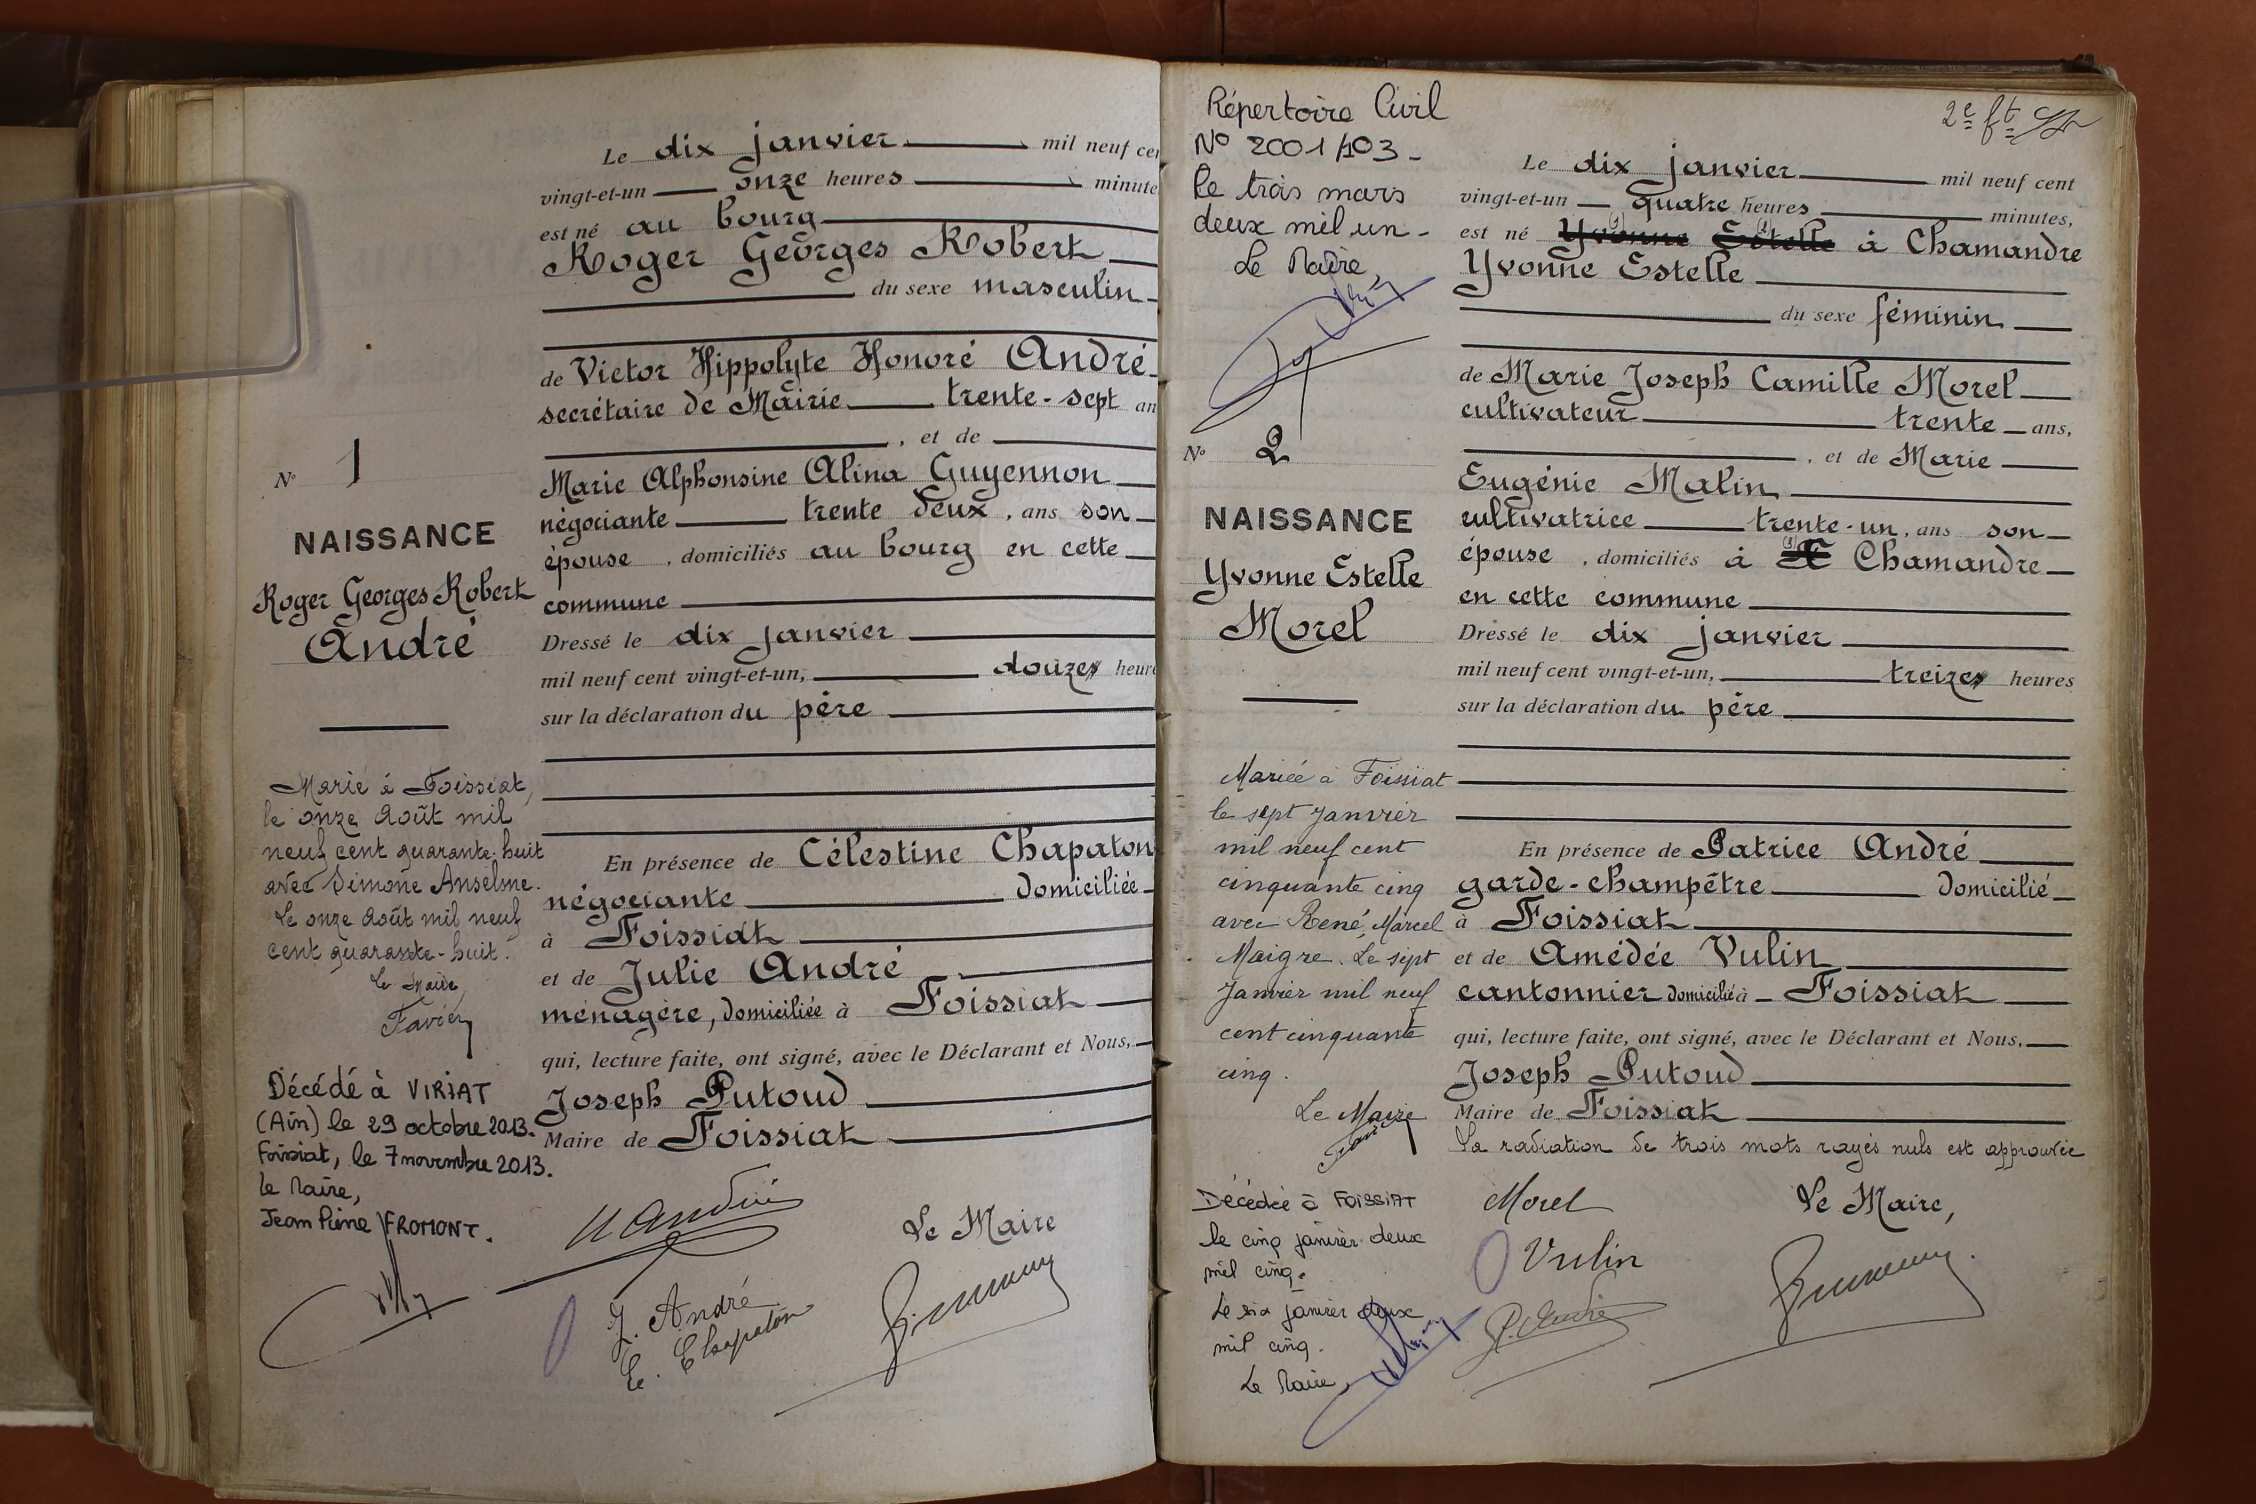 Le dix janvier mil neuf cen
vingt-et-un onze heures minute
est né au bourg
Roger Georges Robert
du sexe masculin
de Victor Hippolyte Honoré André
secrétaire de Mairie trente-sept an
, et de
Marie Alphonsine Alina Guyennon
négociante trente deux, ans son
épouse, domiciliés au bourg en cette
commune
Dressé le dix janvier
mil neuf cent vingt-et-un, douze heure
sur la déclaration du père
En présence de Célestine Chapaton
négociante domiciliée
à Foissiat
et de Julie André
ménagère, domiciliée à Foissiat
qui, lecture faite, ont signé, avec le Déclarant et Nous,
Joseph Putoud
Maire de Foissiat
Le Maire
J. André
C. Chapaton
N° 1
NAISSANCE
Roger Georges Robert
André
Marié à Foissiat,
le onze Août mil
neuf cent quarante-huit
avec Simone Anselme.
Le onze Août mil neuf
cent quarante-huit.
Le Maire,
Favier
Décédé à VIRIAT
(Ain) le 29 octobre 2013.
Foissiat, le 7 novembre 2013.
Le Maire,
Jean Pierre FROMONT.
Répertoire Civil
N° 2001/103-
Le trois mars
deux mil un-
Le Maire,
N° 2
NAISSANCE
Yvonne Estelle
Morel
Mariée à Foissiat
le sept Janvier
mil neuf cent
cinquante cinq
avec René, Marcel
Maigre. Le sept
Janvier mil neuf
cent cinquante
cinq.
Le Maire
Favier
Décédée à FOISSIAT
le cinq janvier deux
mil cinq.
Le six janvier deux
mil cinq.
Le Maire,
2e ft
Le dix janvier mil neuf cent
vingt-et-un quatre heures minutes,
est né Yvonne Estelle à Chamandre
Yvonne Estelle
du sexe féminin
de Marie Joseph Camille Morel
cultivateur trente ans,
, et de Marie
Eugénie Malin
cultivatrice trente-un, ans son
épouse, domiciliés à Chamandre
en cette commune
Dressé le dix janvier
mil neuf cent vingt-et-un, treize heures
sur la déclaration du père
En présence de Patrice André
garde-champêtre domicilié
à Foissiat
et de Amédée Vulin
cantonnier domicilié à Foissiat
qui, lecture faite, ont signé, avec le Déclarant et Nous,
Joseph Putoud
Maire de Foissiat
La radiation de trois mots rayés nuls est approuvée
Morel Le Maire,
Vulin
P. André